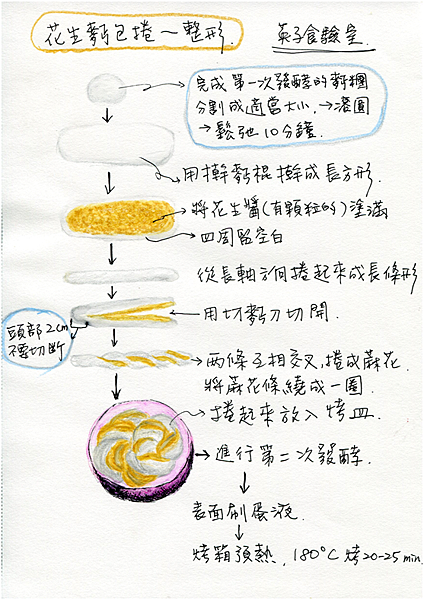 花生麵包捲~整形.
英子食驗室.
完成第一次發酵的麵糰
分割成適當大小,→滾圓
→鬆弛10分鐘.
用擀麵棍擀成長方形.
將花生醬(有顆粒的)塗滿
四周留空白
從長軸方向捲起來成長條形
頭部2cm
不要切斷
用切麵刀切開.
兩條互相交叉,捲成麻花.
將麻花條繞成一圈.
捲起來放入烤皿.
進行第二次發酵.
表面刷蛋液.
烤箱預熱,180°C烤20-25min.